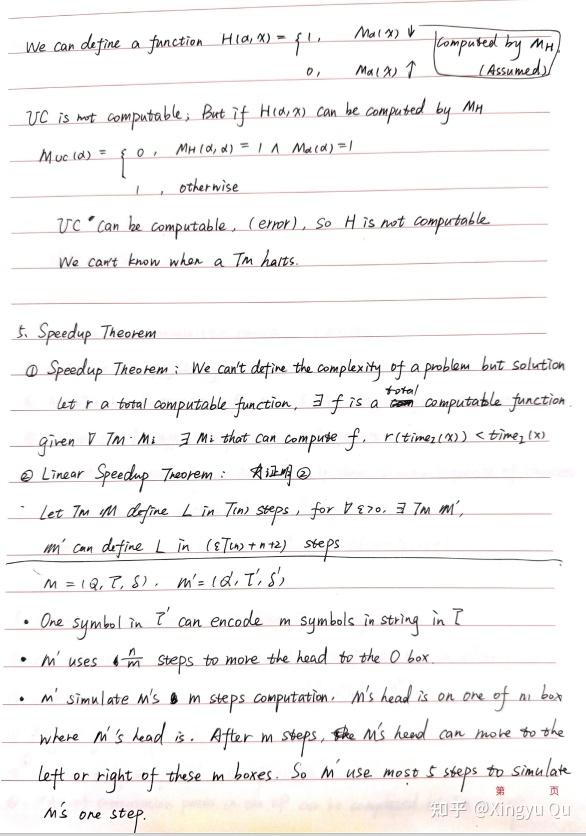 We can define a function H(α,x) = { 1, Mα(x) ↓ Computed by MH
0, Mα(x) ↑ (Assumed)
UC is not computable; But if H(α,x) can be computed by MH
Muc(α) = { 0, MH(α,α) = 1 ∧ Mα(α)=1
1, otherwise
UC can be computable, (error), so H is not computable
We can't know when a TM halts.
5. Speedup Theorem
① Speedup Theorem: We can't define the complexity of a problem but solution
total
Let r a total computable function, ∃ f is a computable function.
given ∀ TM. Mi ∃ Mi that can compute f. r(time2(x)) < time2(x)
② Linear Speedup Theorem: 证明②
Let TM M define L in T(n) steps, for ∀ ε>0. ∃ TM M',
M' can define L in (εT(n)+n+2) steps
M = (Q, T, δ). M'=(Q', T', δ')
• One symbol in T' can encode m symbols in string in T
• M' uses n/m steps to move the head to the 0 box.
• M' simulate M's m steps computation. M's head is on one of m box
where M's head is. After m steps, M's head can move to the
left or right of these m boxes. So M' use most 5 steps to simulate
M's one step.
第 页
知乎 @Xingyu Qu